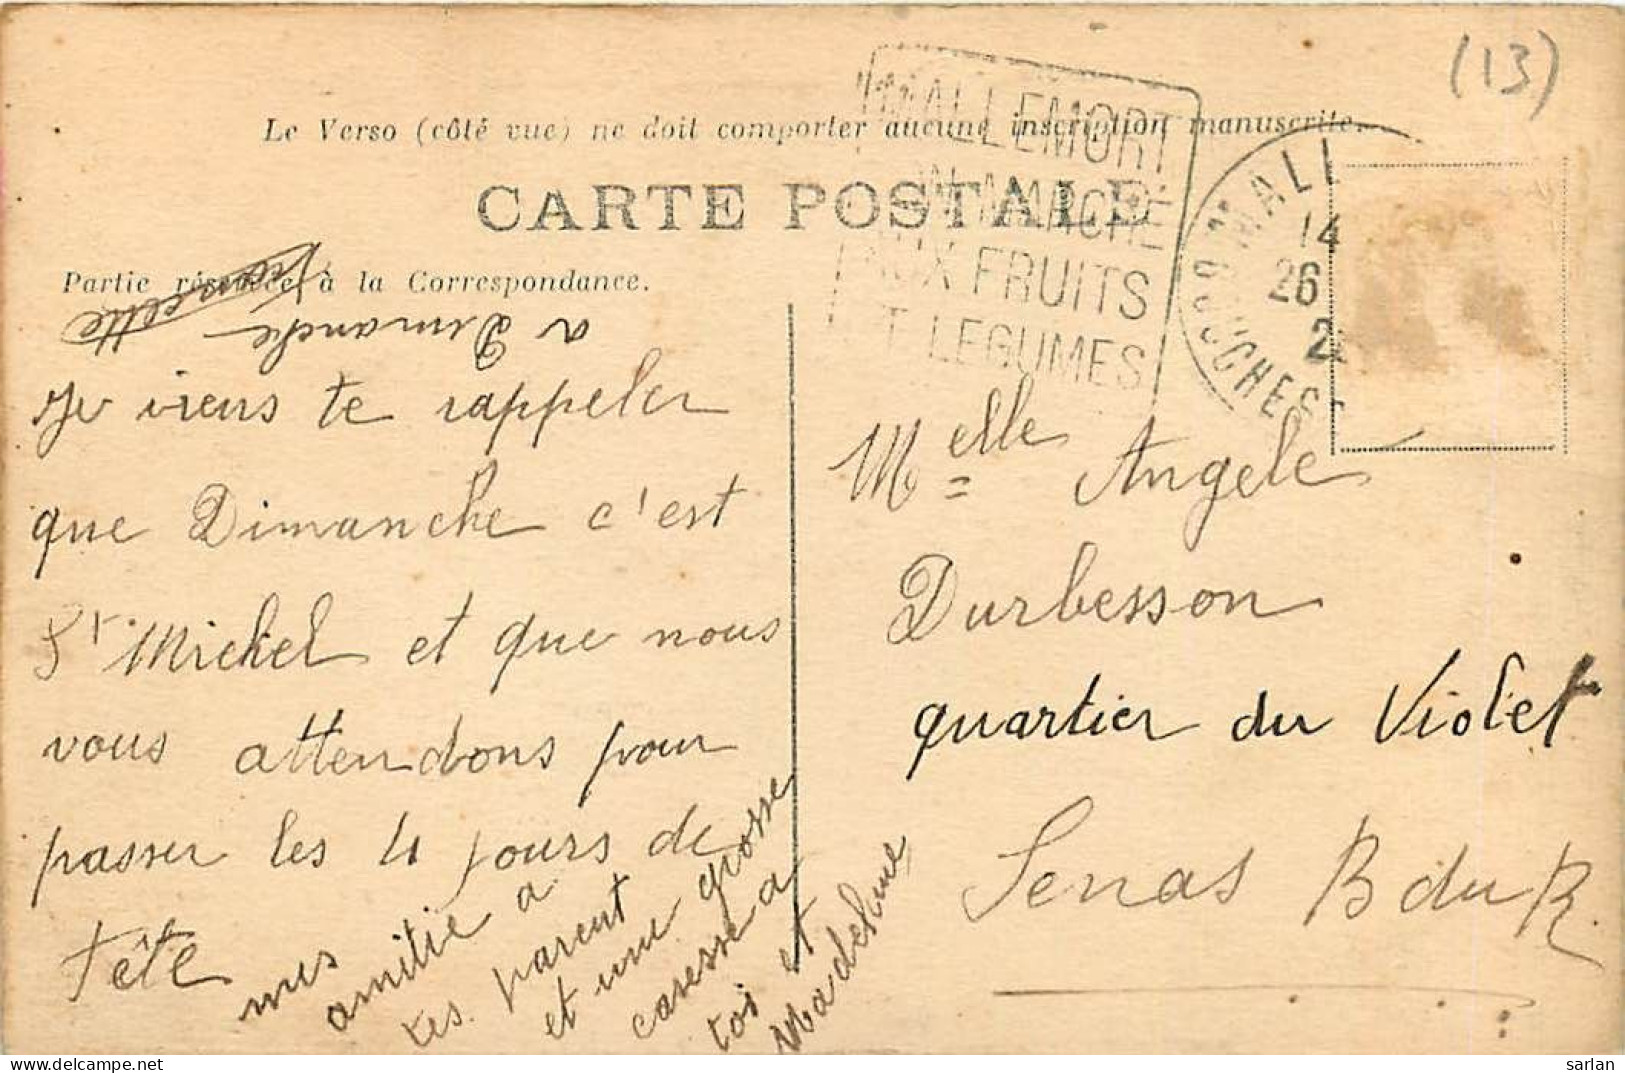 (13)
Le Verso (côté vue) ne doit comporter aucune inscription manuscrite.
MALLEMORT
MARCHÉ
AUX FRUITS
ET LEGUMES
MALL
14
26
2
BOUCHES
CARTE POSTALE
Partie réservée à la Correspondance.
a Dimanche
Francette
Je viens te rappeler
que Dimanche c'est
St Michel et que nous
vous attendons pour
passer les 4 jours de
Fête
mes
amitie a
tes parent
et une grosse
caresse a
toi et
Madeleine
Melle Angele
Durbesson
quartier du Violet
Senas B du R.
sarlan